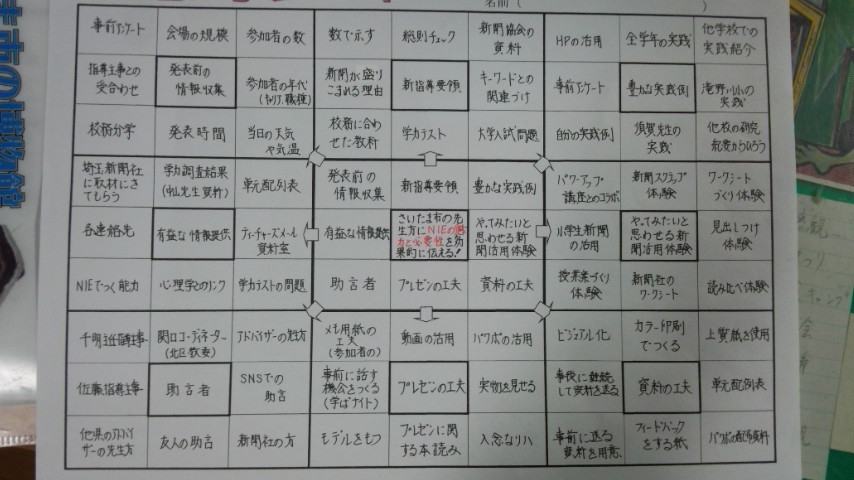 名前(　　　)
事前アンケート
会場の規模
参加者の数
数で示す
総則チェック
新聞協会の
資料
HPの活用
全学年の実践
他学校での
実践紹介
指導主事との
打合わせ
発表前の
情報収集
参加者の年代
(キャリア、職種)
新聞が盛り
こまれる理由
新指導要領
キーワードとの
関連づけ
事前アンケート
豊かな実践例
滝野川小の
実践
校務分掌
発表時間
当日の天気
や気温
校務に合わ
せた教科
学力テスト
大学入試問題
自分の実践例
須賀先生の
実践
他校の研究
紀要からひろう
埼玉新聞社
に取材にきて
もらう
学力調査結果
(中山先生資料)
単元配列表
発表前の
情報収集
新指導要領
豊かな実践例
パワーアップ
講座とのコラボ
新聞スクラップ
体験
ワークシート
づくり体験
各連絡先
有益な情報提供
ティーチャーズメール
資料室
有益な情報提供
さいたま市の先
生方にNIEの魅
力と必要性を効
果的に伝える!
やってみたいと
思わせる新
聞活用体験
小学生新聞
の活用
やってみたいと
思わせる新
聞活用体験
見出しつけ
体験
NIEでつく能力
心理学とのリンク
学力テストの問題
助言者
プレゼンの工夫
資料の工夫
授業案づくり
体験
新聞社の
ワークシート
読み比べ体験
関口コーディネーター
(北区教委)
アドバイザーの先生方
メモ用紙の
工夫
(参加者の)
動画の活用
パワポの活用
ビジュアル化
カラー印刷
でつくる
上質紙を使用
佐藤指導主事
助言者
SNSでの
助言
事前に話す
機会をつくる
(学ばナイト)
プレゼンの工夫
実物を見せる
事後に継続
して資料を送る
資料の工夫
単元配列表
他県のアドバイ
ザーの先生方
友人の助言
新聞社の方
モデルをもつ
プレゼンに関
する本読み
入念なリハ
事前に送る
資料を用意
フィードバック
をする紙
パワポの配布資料